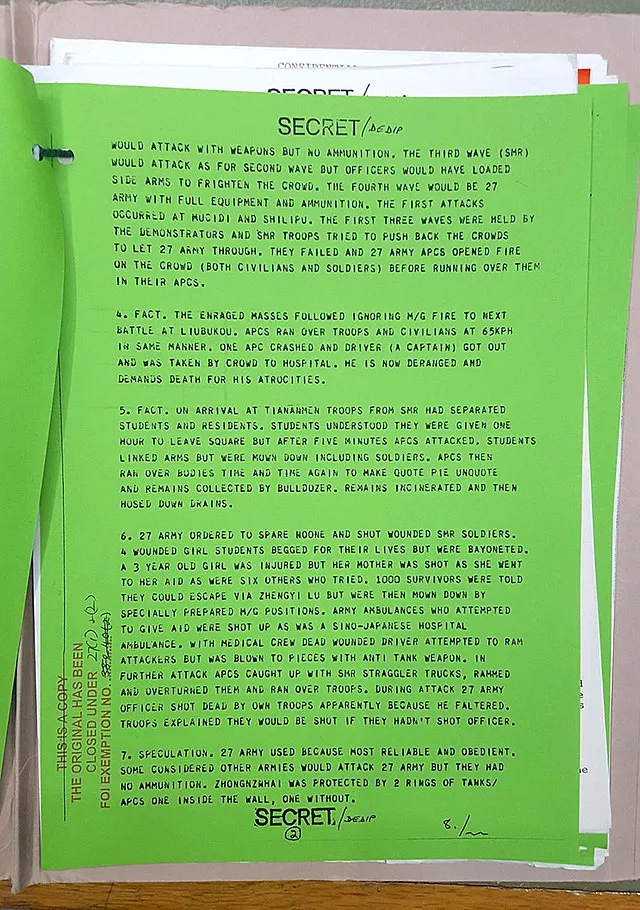 CONFIDENTIAL
SECRET/
SECRET/DEDIP
WOULD ATTACK WITH WEAPONS BUT NO AMMUNITION. THE THIRD WAVE (SMR)
WOULD ATTACK AS FOR SECOND WAVE BUT OFFICERS WOULD HAVE LOADED
SIDE ARMS TO FRIGHTEN THE CROWD. THE FOURTH WAVE WOULD BE 27
ARMY WITH FULL EQUIPMENT AND AMMUNITION. THE FIRST ATTACKS
OCCURRED AT MUCIDI AND SHILIPU. THE FIRST THREE WAVES WERE HELD BY
THE DEMONSTRATORS AND SMR TROOPS TRIED TO PUSH BACK THE CROWDS
TO LET 27 ARMY THROUGH. THEY FAILED AND 27 ARMY APCS OPENED FIRE
ON THE CROWD (BOTH CIVILIANS AND SOLDIERS) BEFORE RUNNING OVER THEM
IN THEIR APCS.
4. FACT. THE ENRAGED MASSES FOLLOWED IGNORING M/G FIRE TO NEXT
BATTLE AT LIUBUKOU. APCS RAN OVER TROOPS AND CIVILIANS AT 65KPH
IN SAME MANNER. ONE APC CRASHED AND DRIVER (A CAPTAIN) GOT OUT
AND WAS TAKEN BY CROWD TO HOSPITAL. HE IS NOW DERANGED AND
DEMANDS DEATH FOR HIS ATROCITIES.
5. FACT. ON ARRIVAL AT TIANANMEN TROOPS FROM SMR HAD SEPARATED
STUDENTS AND RESIDENTS. STUDENTS UNDERSTOOD THEY WERE GIVEN ONE
HOUR TO LEAVE SQUARE BUT AFTER FIVE MINUTES APCS ATTACKED. STUDENTS
LINKED ARMS BUT WERE MOWN DOWN INCLUDING SOLDIERS. APCS THEN
RAN OVER BODIES TIME AND TIME AGAIN TO MAKE QUOTE PIE UNQUOTE
AND REMAINS COLLECTED BY BULLDOZER. REMAINS INCINERATED AND THEN
HOSED DOWN DRAINS.
6. 27 ARMY ORDERED TO SPARE NOONE AND SHOT WOUNDED SMR SOLDIERS.
4 WOUNDED GIRL STUDENTS BEGGED FOR THEIR LIVES BUT WERE BAYONETED.
A 3 YEAR OLD GIRL WAS INJURED BUT HER MOTHER WAS SHOT AS SHE WENT
TO HER AID AS WERE SIX OTHERS WHO TRIED. 1000 SURVIVORS WERE TOLD
THEY COULD ESCAPE VIA ZHENGYI LU BUT WERE THEN MOWN DOWN BY
SPECIALLY PREPARED M/G POSITIONS. ARMY AMBULANCES WHO ATTEMPTED
TO GIVE AID WERE SHOT UP AS WAS A SINO-JAPANESE HOSPITAL
AMBULANCE. WITH MEDICAL CREW DEAD WOUNDED DRIVER ATTEMPTED TO RAM
ATTACKERS BUT WAS BLOWN TO PIECES WITH ANTI TANK WEAPON. IN
FURTHER ATTACK APCS CAUGHT UP WITH SMR STRAGGLER TRUCKS, RAMMED
AND OVERTURNED THEM AND RAN OVER TROOPS. DURING ATTACK 27 ARMY
OFFICER SHOT DEAD BY OWN TROOPS APPARENTLY BECAUSE HE FALTERED.
TROOPS EXPLAINED THEY WOULD BE SHOT IF THEY HADN'T SHOT OFFICER.
7. SPECULATION. 27 ARMY USED BECAUSE MOST RELIABLE AND OBEDIENT.
SOME CONSIDERED OTHER ARMIES WOULD ATTACK 27 ARMY BUT THEY HAD
NO AMMUNITION. ZHONGNZNHAI WAS PROTECTED BY 2 RINGS OF TANKS/
APCS ONE INSIDE THE WALL, ONE WITHOUT.
SECRET/DEDIP
2
8./
THIS IS A COPY
THE ORIGINAL HAS BEEN
CLOSED UNDER 27(1)+(2)
FOI EXEMPTION NO.